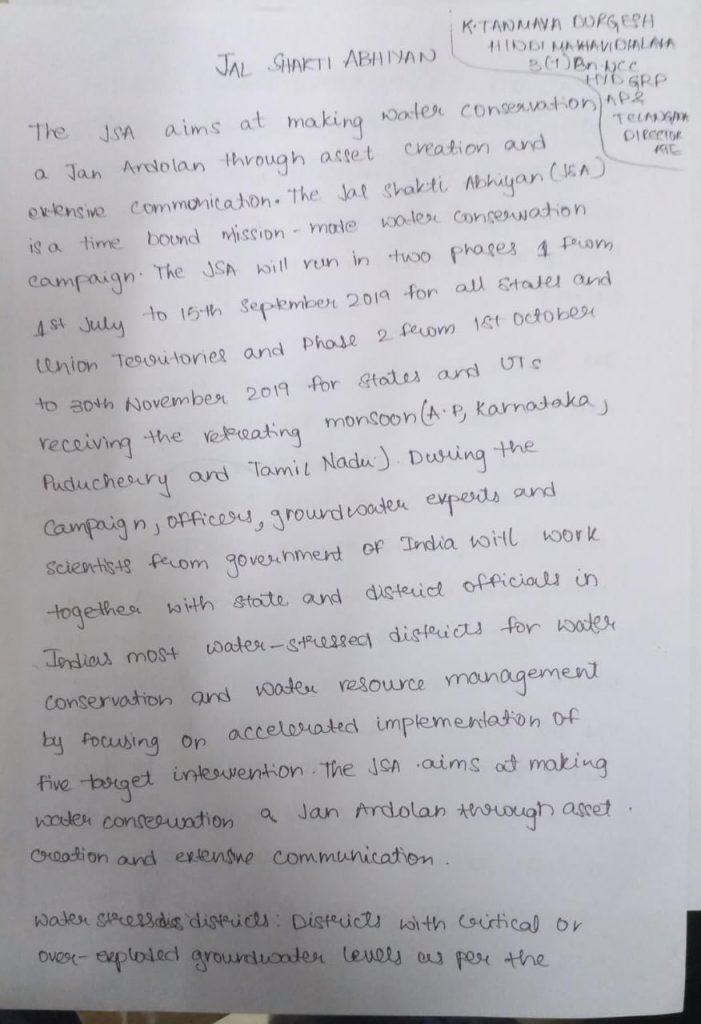 K. TANMAYA DURGESH
HINDI MAHAVIDYALAYA
3(T) Bn NCC
HYD GRP
AP&
TELANGANA
DIRECTOR
ATE
JAL SHAKTI ABHIYAN
The JSA aims at making water conservation
a Jan Ardolan through asset creation and
extensive communication. The Jal Shakti Abhiyan (JSA)
is a time bound Mission - mode water conservation
campaign. The JSA will run in two phases 1 from
1st July to 15th September 2019 for all States and
Union Territories and Phase 2 from 1st October
to 30th November 2019 for States and UTs
receiving the retreating monsoon (A.P, Karnataka,
Puducherry and Tamil Nadu). During the
Campaign, officers, groundwater experts and
scientists from government of India will work
together with state and district officials in
Indias most water-stressed districts for water
conservation and water resource management
by focusing on accelerated implementation of
five target intervention. The JSA aims at making
water conservation a Jan Ardolan through asset
creation and extensive communication.
Water districts: Districts with critical or
over-exploted groundwater levels as per the